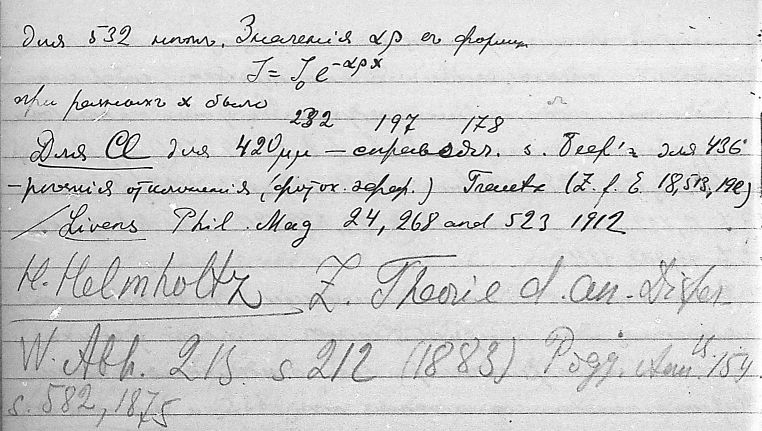 для 532 нѣтъ. Значенія αρ въ формул
J = J₀ e^{-αρx}
при разныхъ x было
232 197 178
Для Cl для 420μμ – справедл. s. Beer'a для 436
отклоненія (фотох. эфф.) (Z. f. E 18, 513, 1912)
Livens Phil. Mag 24, 268 and 523 1912
H. Helmholtz Z. Theorie d. an. Disper
W. Abh. 2 B. s 212 (1883) Pogg. Ann. 154
s. 582, 1875